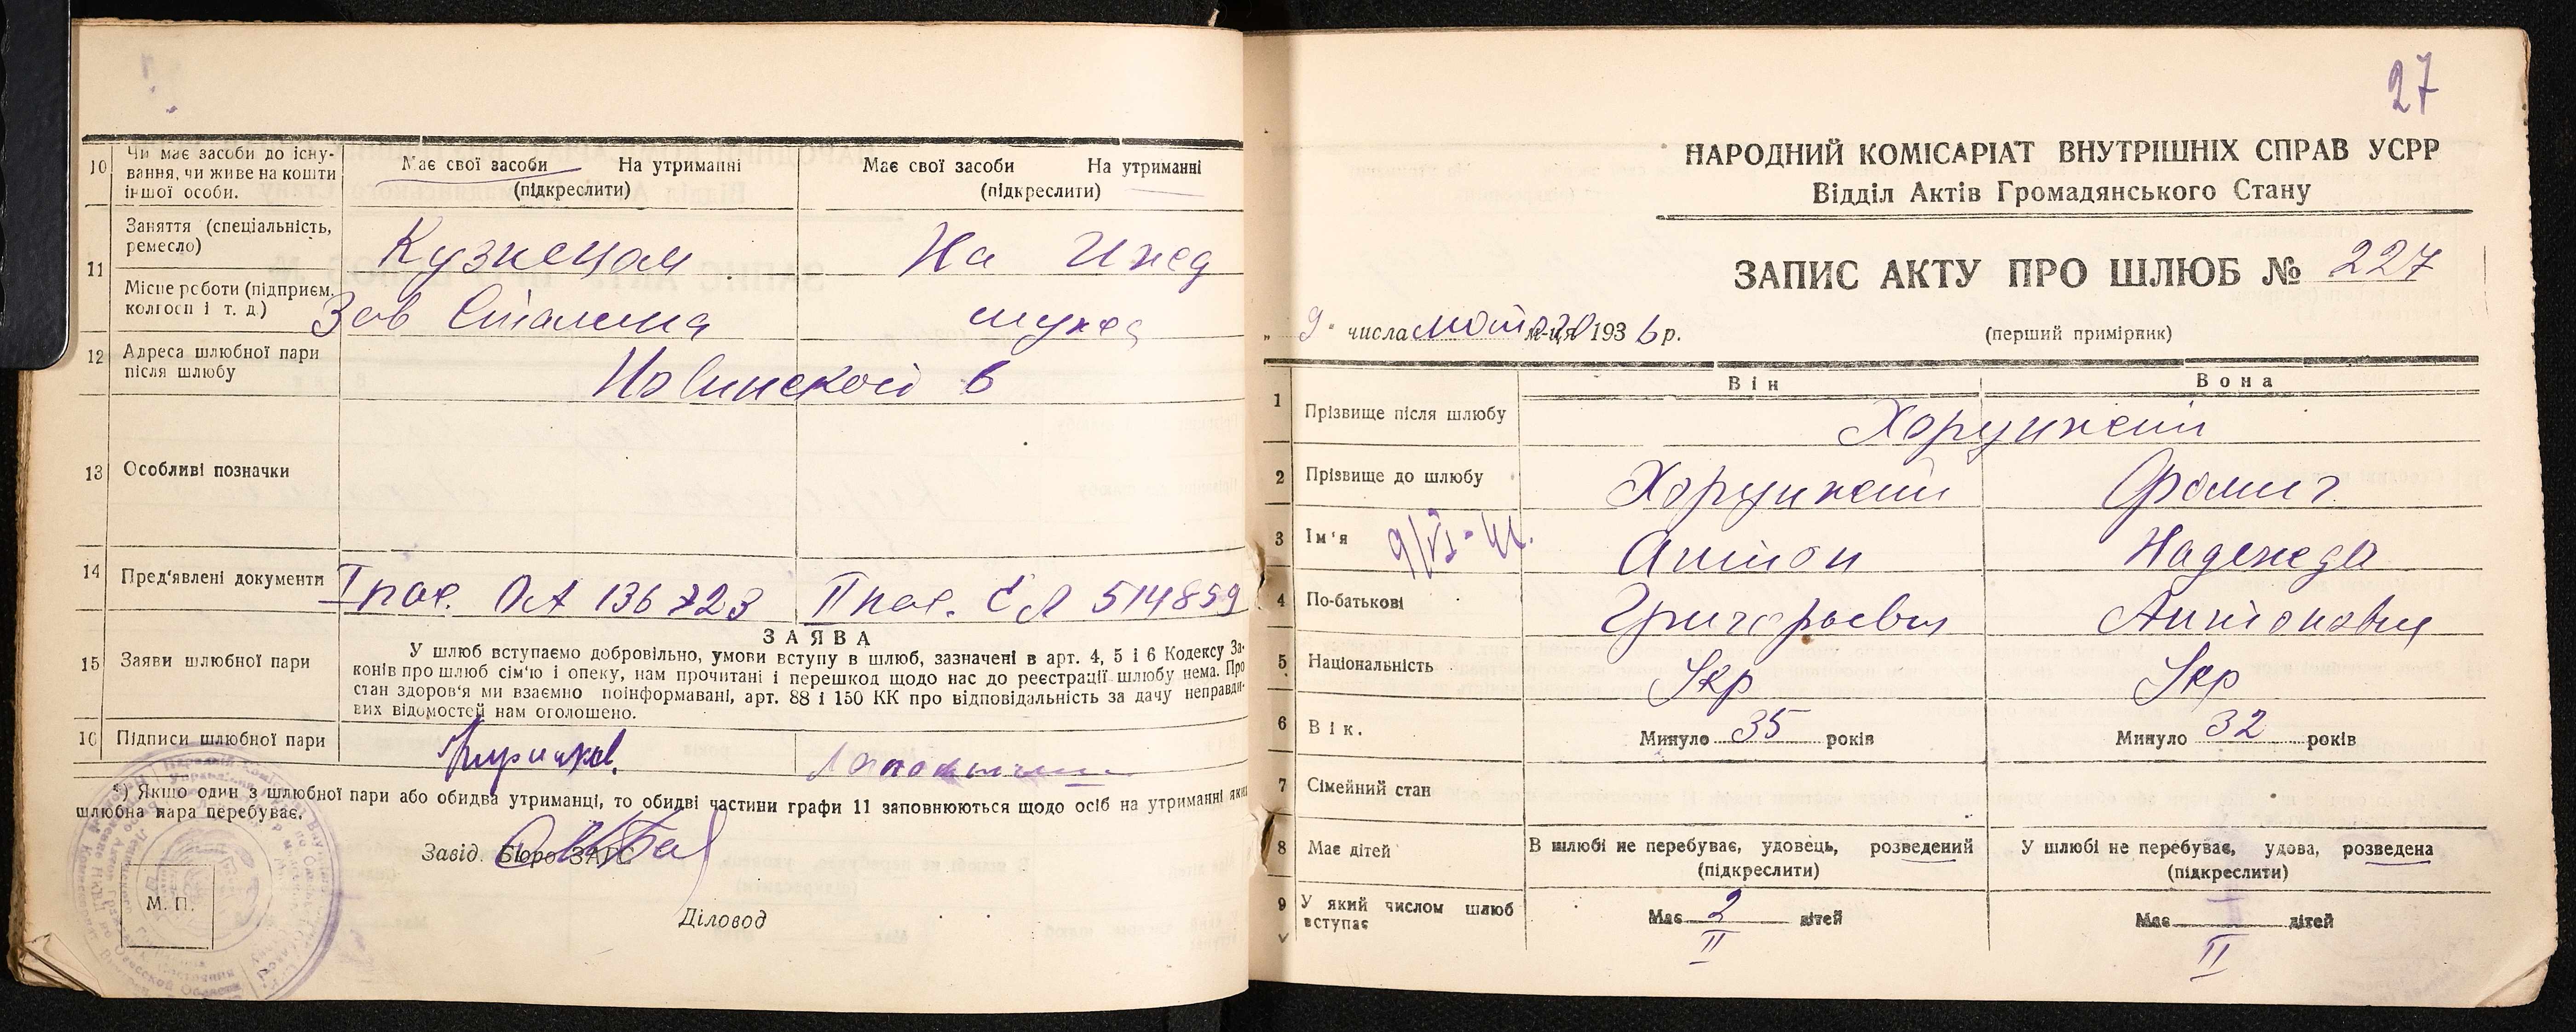 10 Чи має засоби до існу-
вання, чи живе на кошти
іншої особи.
Має свої засоби На утриманні
(підкреслити)
Має свої засоби На утриманні
(підкреслити)
11 Заняття (спеціальність,
ремесло)
Кузнецом
На Ижед
Місце роботи (підприєм.
колгосп і т. д.)
Зав Сталина
мужа
12 Адреса шлюбної пари
після шлюбу
6
13 Особливі позначки
14 Пред'явлені документи
I пас. ОА 136723
II пас. ЄЛ 514859
15 Заяви шлюбної пари
ЗАЯВА
У шлюб вступаємо добровільно, умови вступу в шлюб, зазначені в арт. 4, 5 і 6 Кодексу За-
конів про шлюб сім'ю і опеку, нам прочитані і перешкод щодо нас до реєстрації шлюбу нема. Про
стан здоров'я ми взаємно поінформавані, арт. 88 і 150 КК про відповідальність за дачу неправди-
вих відомостей нам оголошено.
16 Підписи шлюбної пари
*) Якщо один з шлюбної пари або обидва утриманці, то обидві частини графи 11 заповнюються щодо осіб на утриманні яких
шлюбна пара перебуває.
Завід. Бюро ЗАГС
М. П.
Діловод
27
НАРОДНИЙ КОМІСАРІАТ ВНУТРІШНІХ СПРАВ УСРР
Відділ Актів Громадянського Стану
ЗАПИС АКТУ ПРО ШЛЮБ № 227
„ 9 " числа лютого м-ця 1936 р.
(перший примірник)
Він Вона
1 Прізвище після шлюбу
Хорунжий
2 Прізвище до шлюбу
Хорунжий
Фомич
3 Ім'я
9/VI-41.
Антон
Надежда
4 По-батькові
Григорьевич
Антоновна
5 Національність
Укр
Укр
6 Вік.
Минуло 35 років
Минуло 32 років
7 Сімейний стан
8 Має дітей
В шлюбі не перебуває, удовець, розведений
(підкреслити)
У шлюбі не перебуває, удова, розведена
(підкреслити)
9 У який числом шлюб
вступає
Має 2 дітей
II
Має дітей
II